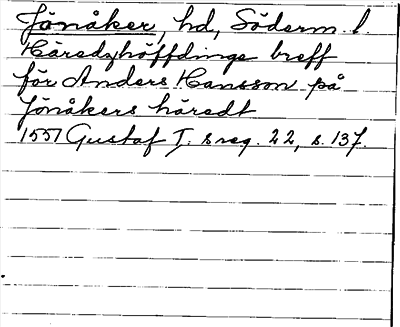 Jönåker, hd, Söderm. l.
Häredzhöffdinge breff
för Anders Hansson på
Jönåkers häredt
1557 Gustaf I:s reg. 22, s. 137.